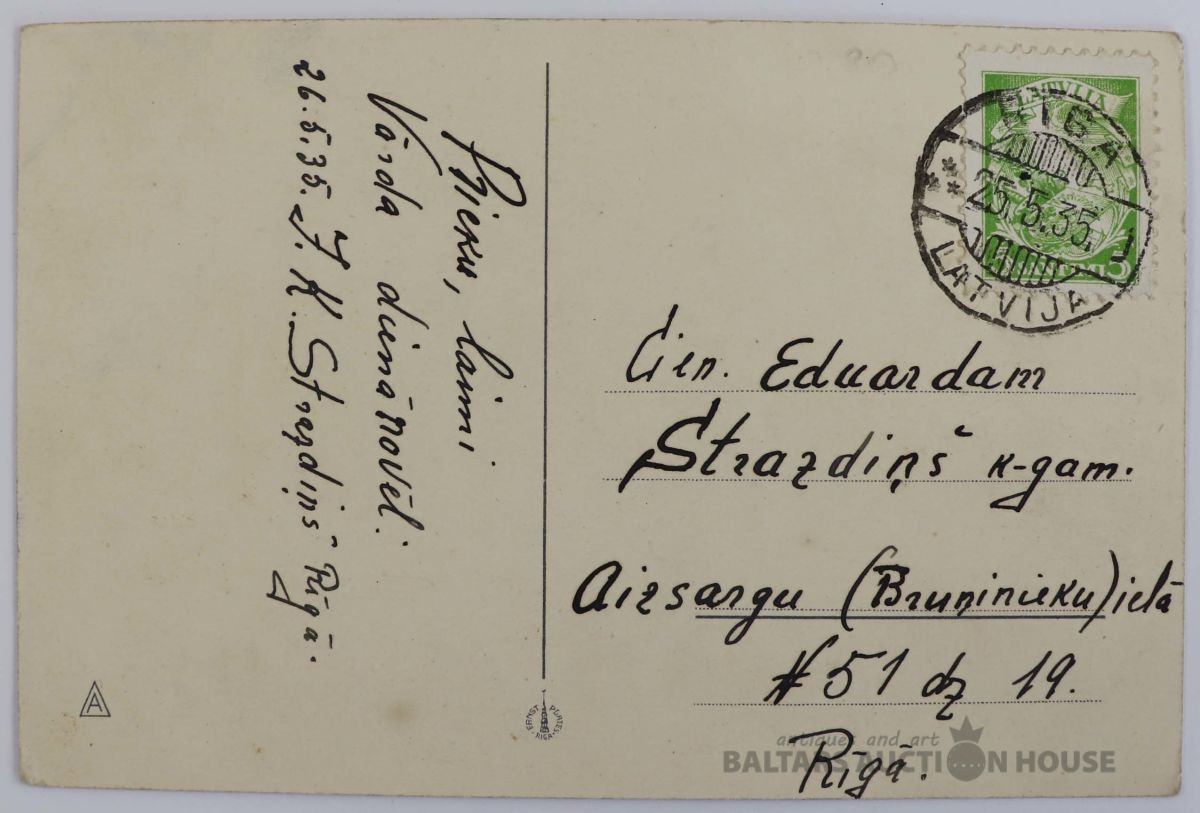 Prieku, laimi
Vārda dienā novēl:
26.5.35. J. K. Strazdiņš Rīgā.
LATVIJA
RIGA
25.5.35. 1
LATVIJA
Cien. Eduardam
Strazdiņš k-gam.
Aizsargu (Bruņinieku) ielā
# 51 dz 19.
Rīgā.
A
ERNST PLATES RIGA
antiques and art
BALTARS AUCTION HOUSE